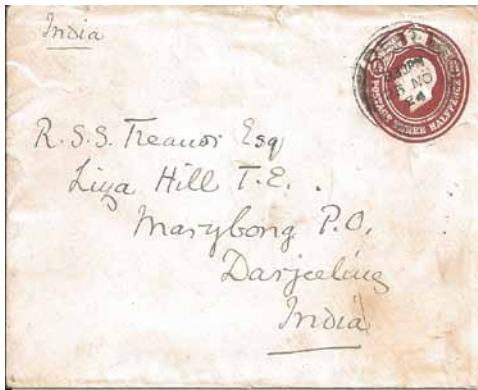 India
POSTAGE THREE HALFPENCE
NO
24
R. S. S. Treanor Esq
Liza Hill T.E.
Marybong P.O.
Darjeeling
India